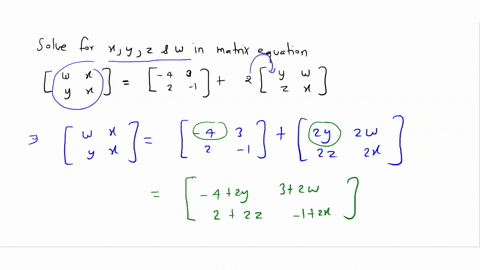 Solve for x, y, z & w in matrix equation
[ w x ; y x ] = [ -4 3 ; 2 -1 ] + 2 [ y w ; z x ]
⇒ [ w x ; y x ] = [ -4 3 ; 2 -1 ] + [ 2y 2w ; 2z 2x ]
= [ -4+2y 3+2w ; 2+2z -1+2x ]